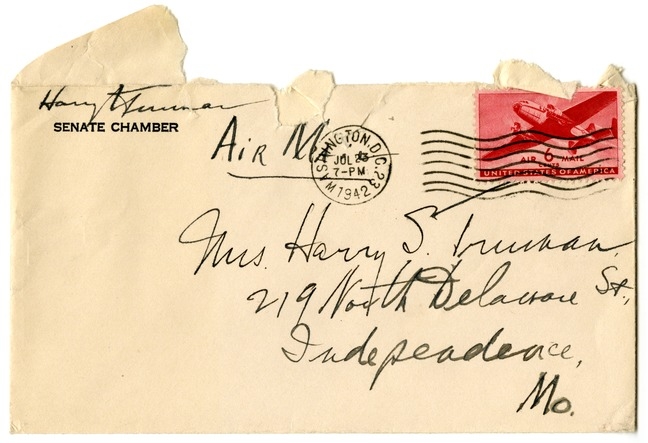 Harry S Truman
SENATE CHAMBER
Air Mail
WASHINGTON, D.C. 23
JUL 23
7-PM
1942
AIR 6 MAIL
CENTS
UNITED STATES OF AMERICA
Mrs. Harry S. Truman
219 North Delaware St.,
Independence,
Mo.